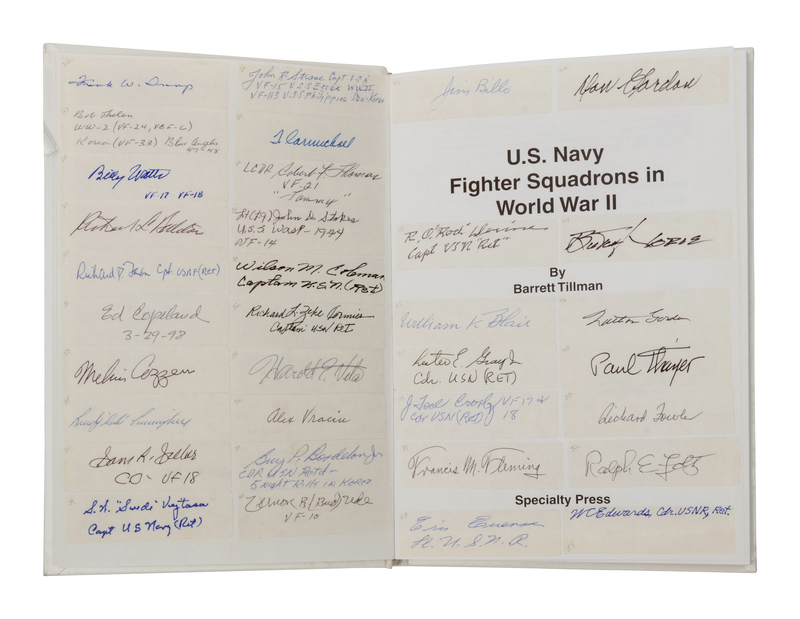 Frank W.
John F. Strane Capt. USN
VF-15 U.S.S. Essex WW II
VF-113 U.S.S. Philippine Sea-Korea
Bob Thelen
WW-2 (VF-24, VBF-6)
Korea (VF-33) Blue Angles
J Carmichael
Billy Watts
VF-17 VF-18
LCDR. Robert F. Thomas
VF-21
"Tommy"
Richard L.
Lt(jg) John D. Stokes
U.S.S Wasp - 1944
VF-14
Richard D. Capt. USNR (RET)
Wilson M. Coleman
Captain U.S.N. (Ret)
Ed Copeland
3-29-98
Richard L. Zeke Cormier
Captain USN RET
Melvin Cozzens
Harold E. Vita
Alex Vraciu
Sam R. Silber
CO - VF 18
Guy P. Bordelon Jr
CDR USN Retd -
5 Night Kills in Korea
S.W. "Swede" Vejtasa
Capt US Navy (Ret)
Vernon R (Bud) Ude
VF-10
Jim Billo
Don Gordon
U.S. Navy
Fighter Squadrons in
World War II
R. O. "Rock" Devine
Capt USN "Ret"
By
Barrett Tillman
William K. Blair
Lester E. Gray Jr
Cdr. USN (RET)
Paul Thayer
J Teel Crosby VF 17 &
Cdr USN (Ret) 18
Richard Fowler
Francis M. Fleming
Ralph E. Foltz
Specialty Press
Eric Erickson
Lt. U.S.N.R.
WC Edwards, Cdr. USNR, Ret.